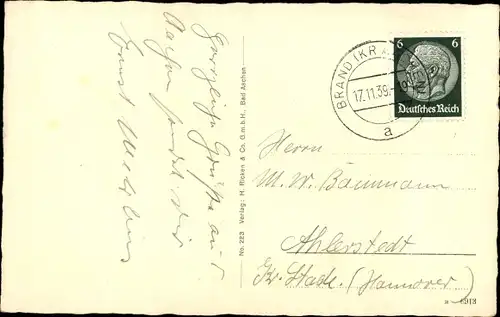 Herzliche Grüße aus
Aachen sendet Dir
Ernst
No. 223 Verlag: H. Ricken & Co. G.m.b.H., Bad Aachen
BRAND (KR AACHEN)
17.11.39.
a
6 6
Deutsches Reich
Herrn
M. W. Baumann
Ahlerstedt
Kr. Stade. (Hannover)
a 6913